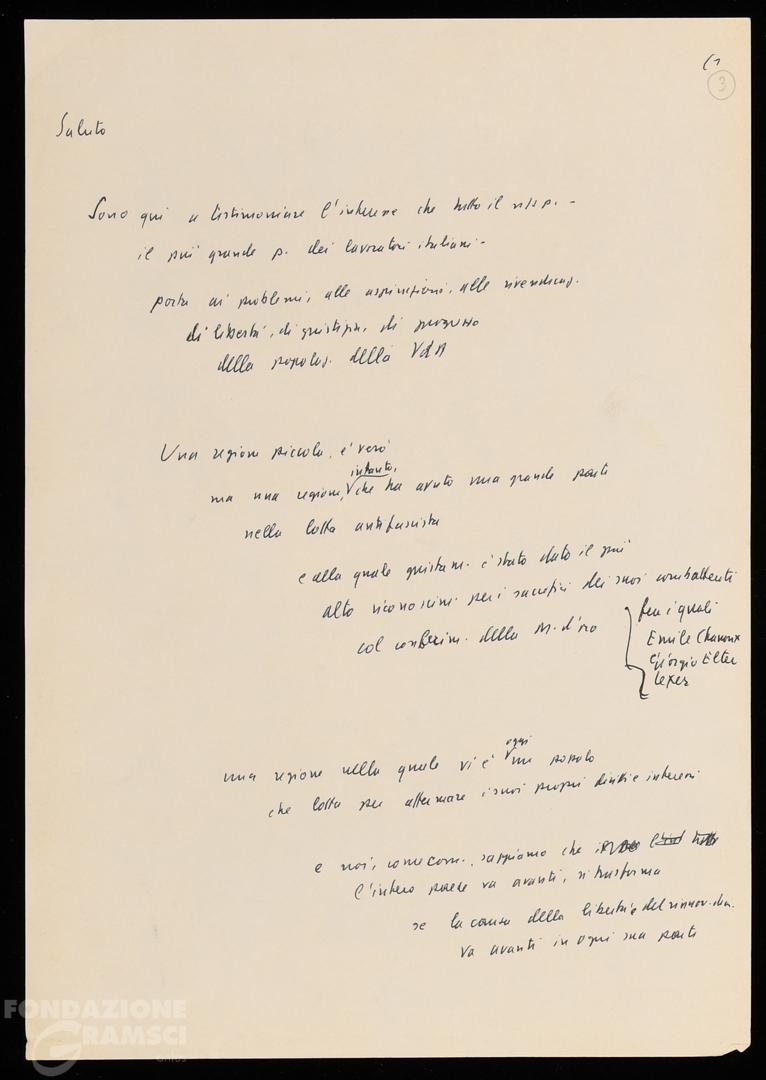 (1
3
Saluto
Sono qui a testimoniare l'interesse che tutto il n/s p. -
il più grande p. dei lavoratori italiani -
porta ai problemi, alle aspirazioni, alle rivendicaz.
di libertà, di giustizia, di progresso
della popolaz. della VdA
Una regione piccola, è vero
intanto,
ma una regione, che ha avuto una grande parte
nella lotta antifascista
e alla quale giustam. è stato dato il più
alto riconoscim. per i sacrifici dei suoi combattenti
col conferim. della M. d'oro
fra i quali
Emile Chanoux
Giorgio Elter
Lexer
oggi
una regione nella quale vi è un popolo
che lotta per affermare i suoi propri diritti e interessi
e noi, come com., sappiamo che
l'intero paese va avanti, si trasforma
se la causa della libertà e del rinnov. dem.
va avanti in ogni sua parte
FONDAZIONE
GRAMSCI
onlus